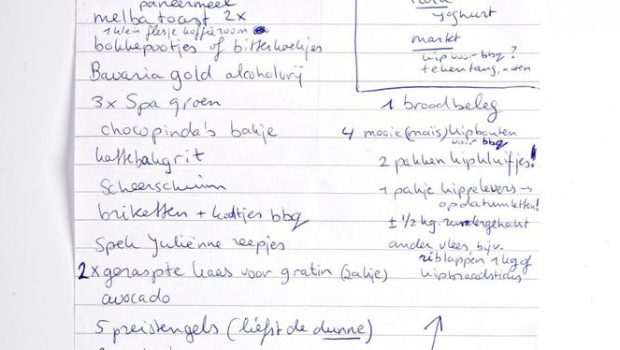 paneermeel
melba toast 2x
1 klein flesje koffieroom
bokkepootjes of bitterkoekjes
Bavaria gold alcoholvrij
3x Spa groen
chocopinda's bakje
kattebakgrit
Scheerschuim
briketten + houtjes bbq
Spek Juliënne reepjes
2x geraspte kaas voor gratin (zakje)
avocado
5 preistengels (liefst de dunne)
yoghurt
markt
kip voor bbq?
1 broodbeleg
4 mooie (maïs) kipbouten
voor bbq
2 pakken kipkluifjes!
1 pakje kippelevers →
op datum letten!
± 1/2 kg. rundergehakt
ander vlees, bijv.
riblappen 1 kg of
kipbraadsticks